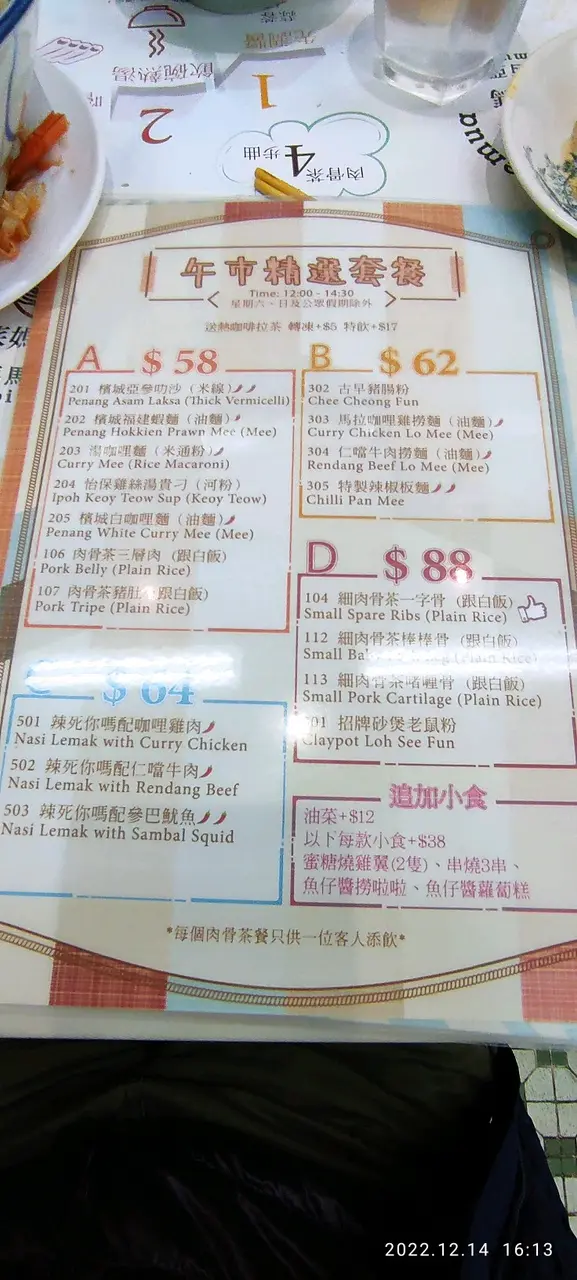 飲碗熱湯
先調醬
1
2
肉骨茶4步曲
午市精選套餐
Time: 12:00 - 14:30
星期六、日及公眾假期除外
送熱咖啡拉茶 轉凍+$5 特飲+$17
A $58
201 檳城亞參叻沙（米線）
Penang Asam Laksa (Thick Vermicelli)
202 檳城福建蝦麵（油麵）
Penang Hokkien Prawn Mee (Mee)
203 湯咖哩麵（米通粉）
Curry Mee (Rice Macaroni)
204 怡保雞絲湯貴刁（河粉）
Ipoh Keoy Teow Sup (Keoy Teow)
205 檳城白咖哩麵（油麵）
Penang White Curry Mee (Mee)
106 肉骨茶三層肉（跟白飯）
Pork Belly (Plain Rice)
107 肉骨茶豬肚（跟白飯）
Pork Tripe (Plain Rice)
B $62
302 古早豬腸粉
Chee Cheong Fun
303 馬拉咖哩雞撈麵（油麵）
Curry Chicken Lo Mee (Mee)
304 仁噹牛肉撈麵（油麵）
Rendang Beef Lo Mee (Mee)
305 特製辣椒板麵
Chilli Pan Mee
C $64
501 辣死你嗎配咖哩雞肉
Nasi Lemak with Curry Chicken
502 辣死你嗎配仁噹牛肉
Nasi Lemak with Rendang Beef
503 辣死你嗎配參巴魷魚
Nasi Lemak with Sambal Squid
D $88
104 細肉骨茶一字骨（跟白飯）
Small Spare Ribs (Plain Rice)
112 細肉骨茶棒棒骨（跟白飯）
Small (Plain Rice)
113 細肉骨茶啫喱骨（跟白飯）
Small Pork Cartilage (Plain Rice)
01 招牌砂煲老鼠粉
Claypot Loh See Fun
追加小食
油菜+$12
以下每款小食+$38
蜜糖燒雞翼(2隻)、串燒3串、
魚仔醬撈啦啦、魚仔醬蘿蔔糕
*每個肉骨茶餐只供一位客人添飲*
2022.12.14 16:13